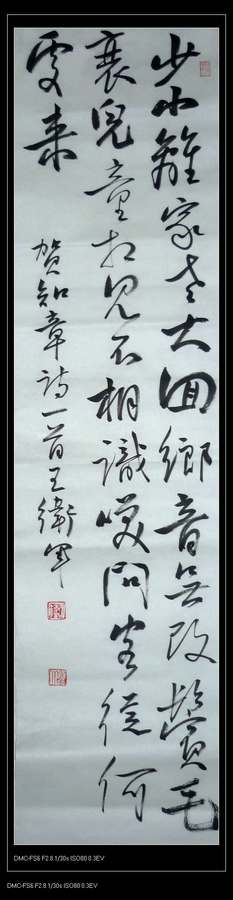 少小離家老大囬鄉音无改鬢毛
衰兒童相見不相識咲問客從何
處来
贺知章詩一首王衛軍
DMC-FS6 F2.8 1/30s ISO80 0.3EV
DMC-FS6 F2.8 1/30s ISO80 0.3EV